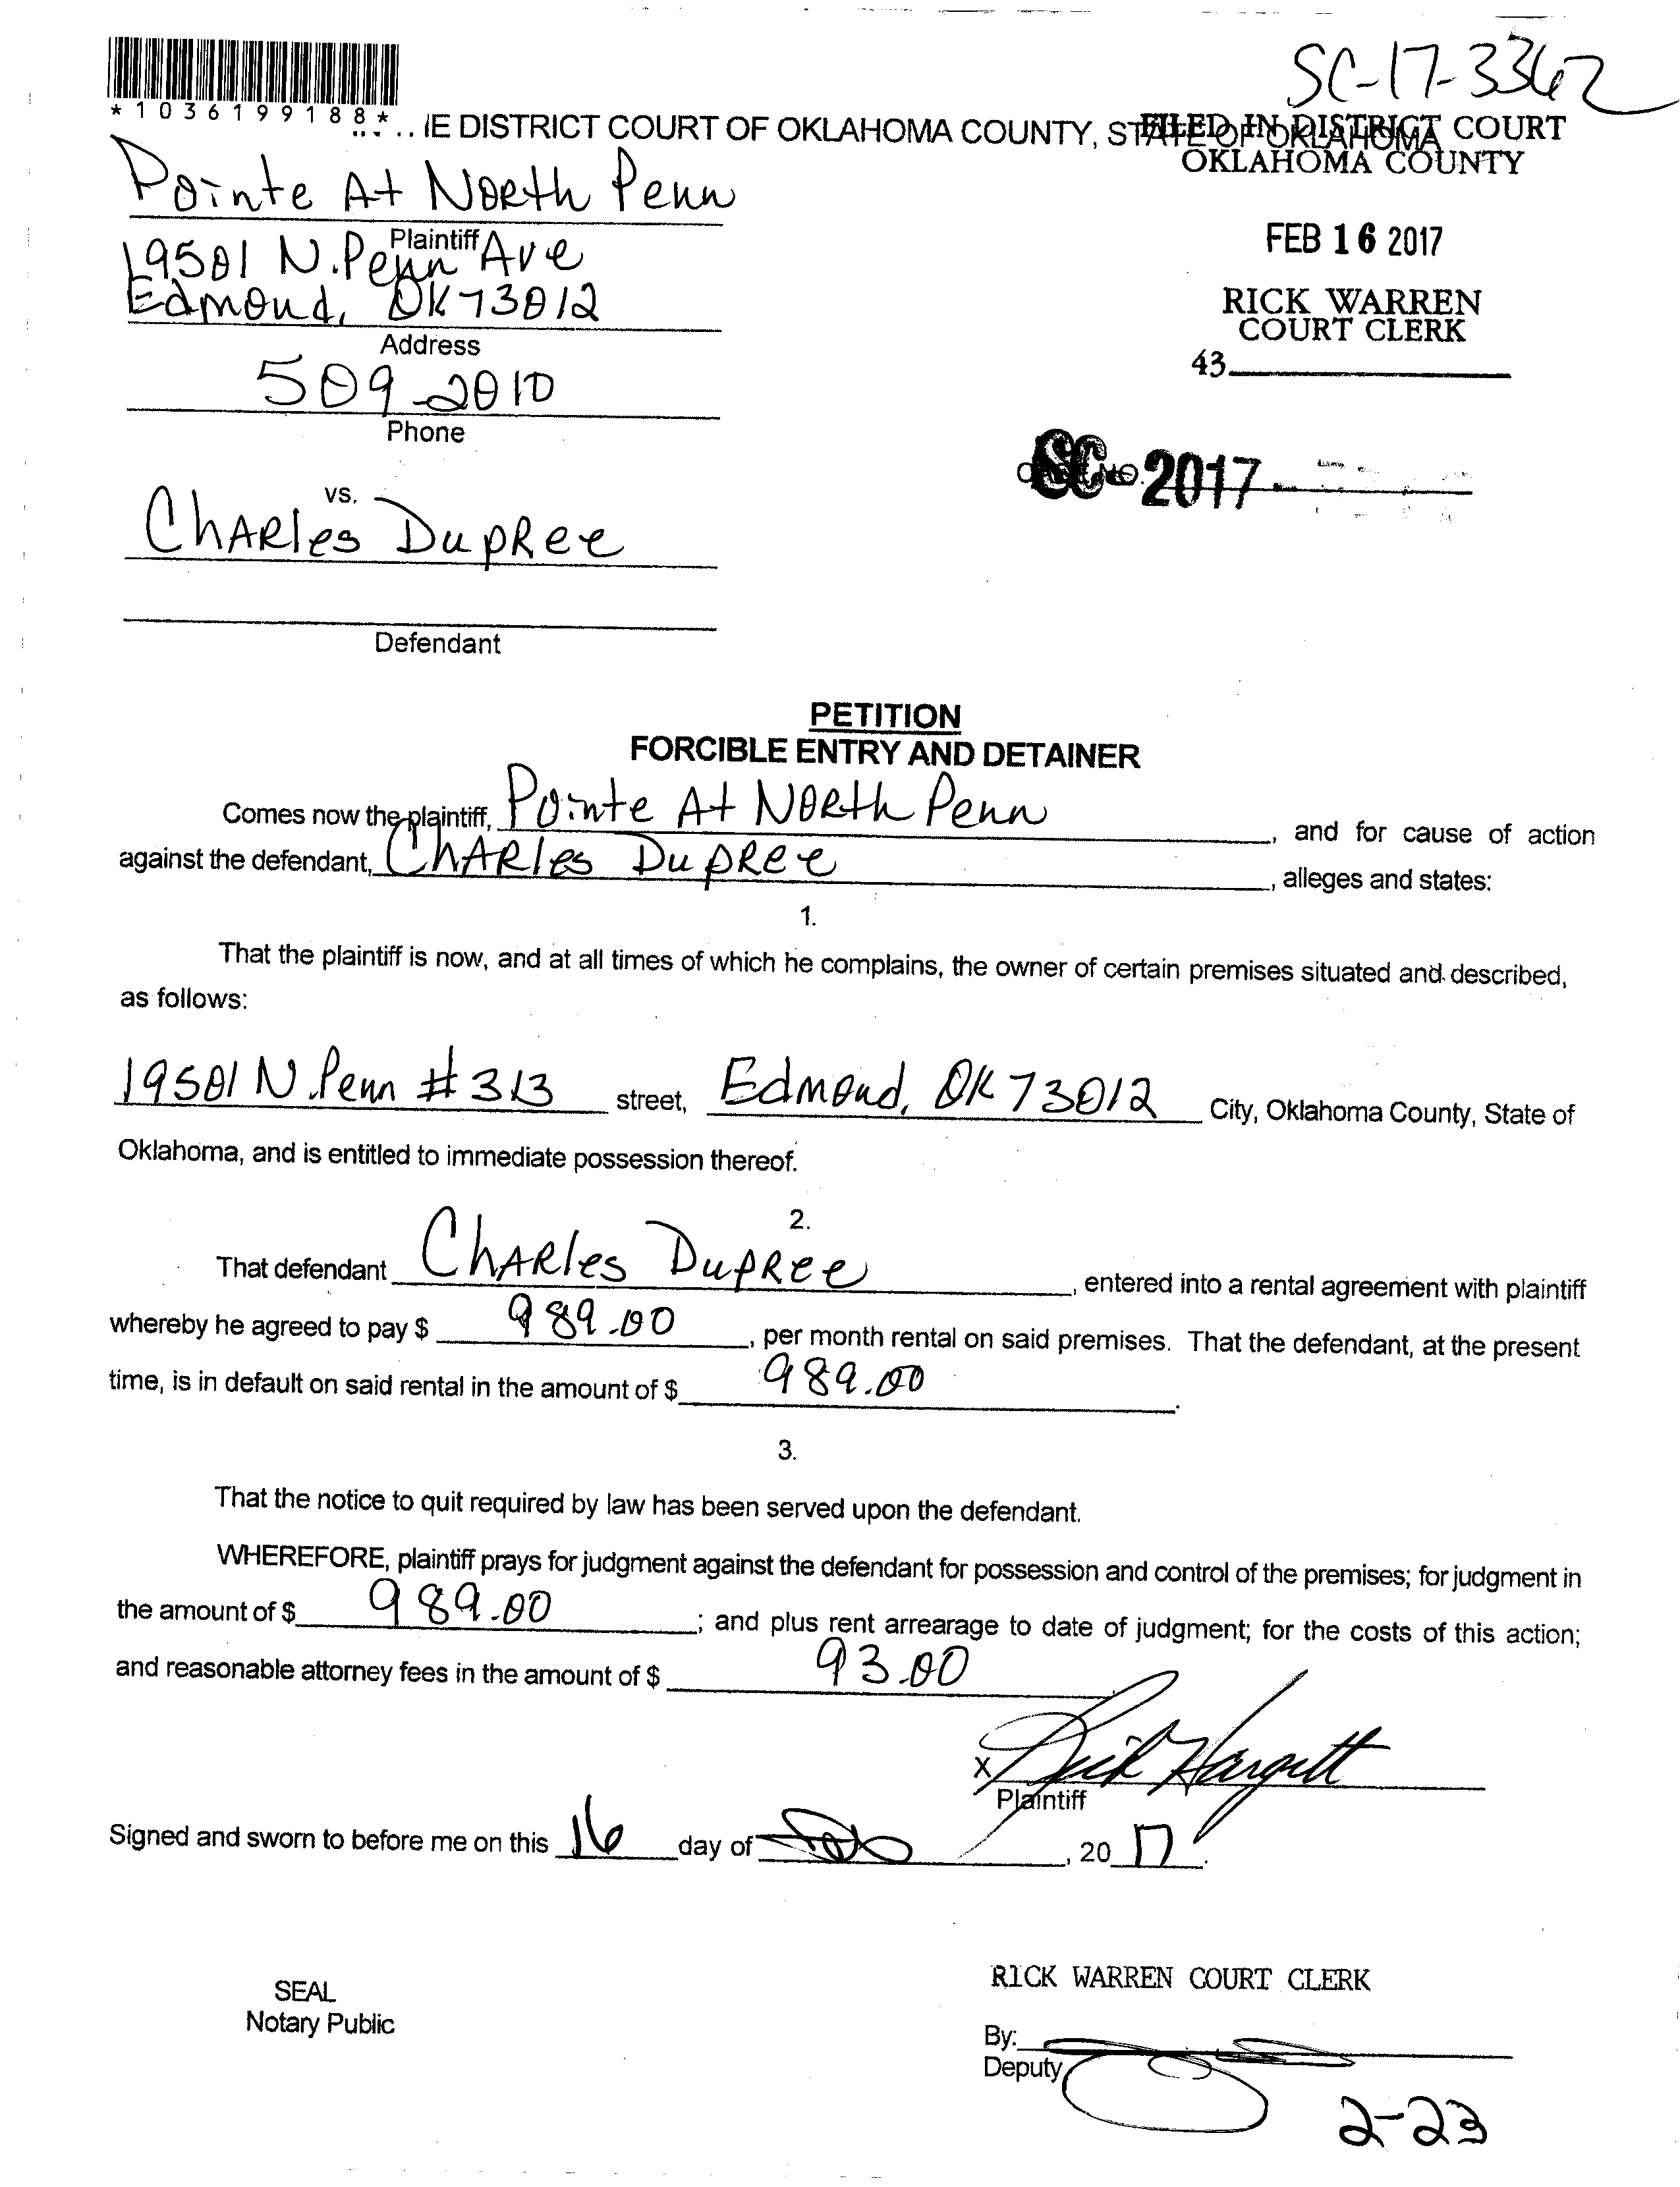 SC-17-3362
*1036199188*
IE DISTRICT COURT OF OKLAHOMA COUNTY, STATE OF OKLAHOMA
FILED IN DISTRICT COURT
OKLAHOMA COUNTY
Pointe At North Penn
Plaintiff
FEB 16 2017
19501 N. Penn Ave
Edmond, OK 73012
Address
RICK WARREN
COURT CLERK
43
509-2010
Phone
SC 2017-
NO.
vs.
Charles Dupree
Defendant
PETITION
FORCIBLE ENTRY AND DETAINER
Comes now the plaintiff, Pointe At North Penn, and for cause of action
against the defendant, Charles Dupree, alleges and states:
1.
That the plaintiff is now, and at all times of which he complains, the owner of certain premises situated and described,
as follows:
19501 N. Penn #313 street, Edmond, OK 73012 City, Oklahoma County, State of
Oklahoma, and is entitled to immediate possession thereof.
2.
That defendant Charles Dupree, entered into a rental agreement with plaintiff
whereby he agreed to pay $ 989.00, per month rental on said premises. That the defendant, at the present
time, is in default on said rental in the amount of $ 989.00.
3.
That the notice to quit required by law has been served upon the defendant.
WHEREFORE, plaintiff prays for judgment against the defendant for possession and control of the premises; for judgment in
the amount of $ 989.00; and plus rent arrearage to date of judgment; for the costs of this action;
and reasonable attorney fees in the amount of $ 93.00
X
Plaintiff
Signed and sworn to before me on this 16 day of , 20 17.
SEAL
Notary Public
RICK WARREN COURT CLERK
By:
Deputy
2-23